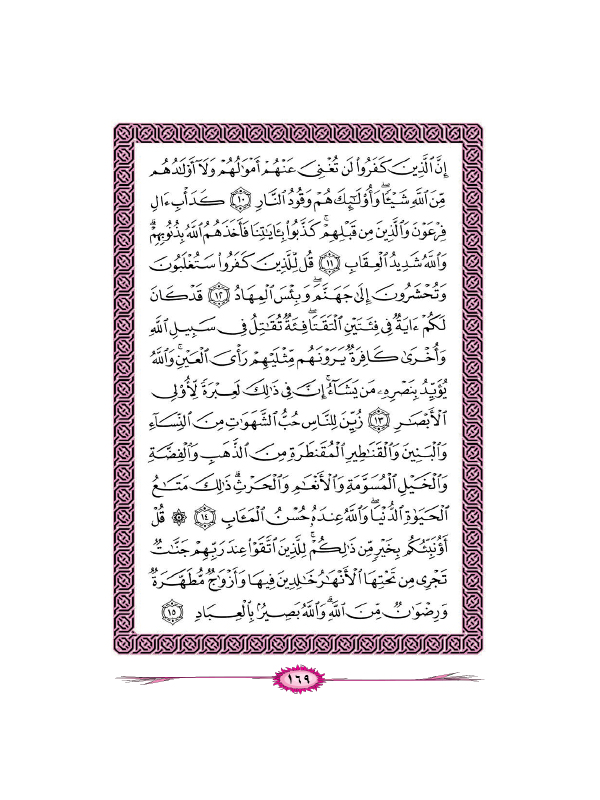 إِنَّ ٱلَّذِينَ كَفَرُوا۟ لَن تُغْنِىَ عَنْهُمْ أَمْوَٰلُهُمْ وَلَآ أَوْلَـٰدُهُم
مِّنَ ٱللَّهِ شَيْـًٔا ۖ وَأُو۟لَـٰٓئِكَ هُمْ وَقُودُ ٱلنَّارِ ﴿١٠﴾ كَدَأْبِ ءَالِ
فِرْعَوْنَ وَٱلَّذِينَ مِن قَبْلِهِمْ ۚ كَذَّبُوا۟ بِـَٔايَـٰتِنَا فَأَخَذَهُمُ ٱللَّهُ بِذُنُوبِهِمْ ۗ
وَٱللَّهُ شَدِيدُ ٱلْعِقَابِ ﴿١١﴾ قُل لِّلَّذِينَ كَفَرُوا۟ سَتُغْلَبُونَ
وَتُحْشَرُونَ إِلَىٰ جَهَنَّمَ ۚ وَبِئْسَ ٱلْمِهَادُ ﴿١٢﴾ قَدْ كَانَ
لَكُمْ ءَايَةٌ فِى فِئَتَيْنِ ٱلْتَقَتَا ۖ فِئَةٌ تُقَـٰتِلُ فِى سَبِيلِ ٱللَّهِ
وَأُخْرَىٰ كَافِرَةٌ يَرَوْنَهُم مِّثْلَيْهِمْ رَأْىَ ٱلْعَيْنِ ۚ وَٱللَّهُ
يُؤَيِّدُ بِنَصْرِهِۦ مَن يَشَآءُ ۗ إِنَّ فِى ذَٰلِكَ لَعِبْرَةً لِّأُو۟لِى
ٱلْأَبْصَـٰرِ ﴿١٣﴾ زُيِّنَ لِلنَّاسِ حُبُّ ٱلشَّهَوَٰتِ مِنَ ٱلنِّسَآءِ
وَٱلْبَنِينَ وَٱلْقَنَـٰطِيرِ ٱلْمُقَنطَرَةِ مِنَ ٱلذَّهَبِ وَٱلْفِضَّةِ
وَٱلْخَيْلِ ٱلْمُسَوَّمَةِ وَٱلْأَنْعَـٰمِ وَٱلْحَرْثِ ۗ ذَٰلِكَ مَتَـٰعُ
ٱلْحَيَوٰةِ ٱلدُّنْيَا ۖ وَٱللَّهُ عِندَهُۥ حُسْنُ ٱلْمَـَٔابِ ﴿١٤﴾ ۞ قُلْ
أَؤُنَبِّئُكُم بِخَيْرٍ مِّن ذَٰلِكُمْ ۚ لِلَّذِينَ ٱتَّقَوْا۟ عِندَ رَبِّهِمْ جَنَّـٰتٌ
تَجْرِى مِن تَحْتِهَا ٱلْأَنْهَـٰرُ خَـٰلِدِينَ فِيهَا وَأَزْوَٰجٌ مُّطَهَّرَةٌ
وَرِضْوَٰنٌ مِّنَ ٱللَّهِ ۗ وَٱللَّهُ بَصِيرٌۢ بِٱلْعِبَادِ ﴿١٥﴾
١٦٩